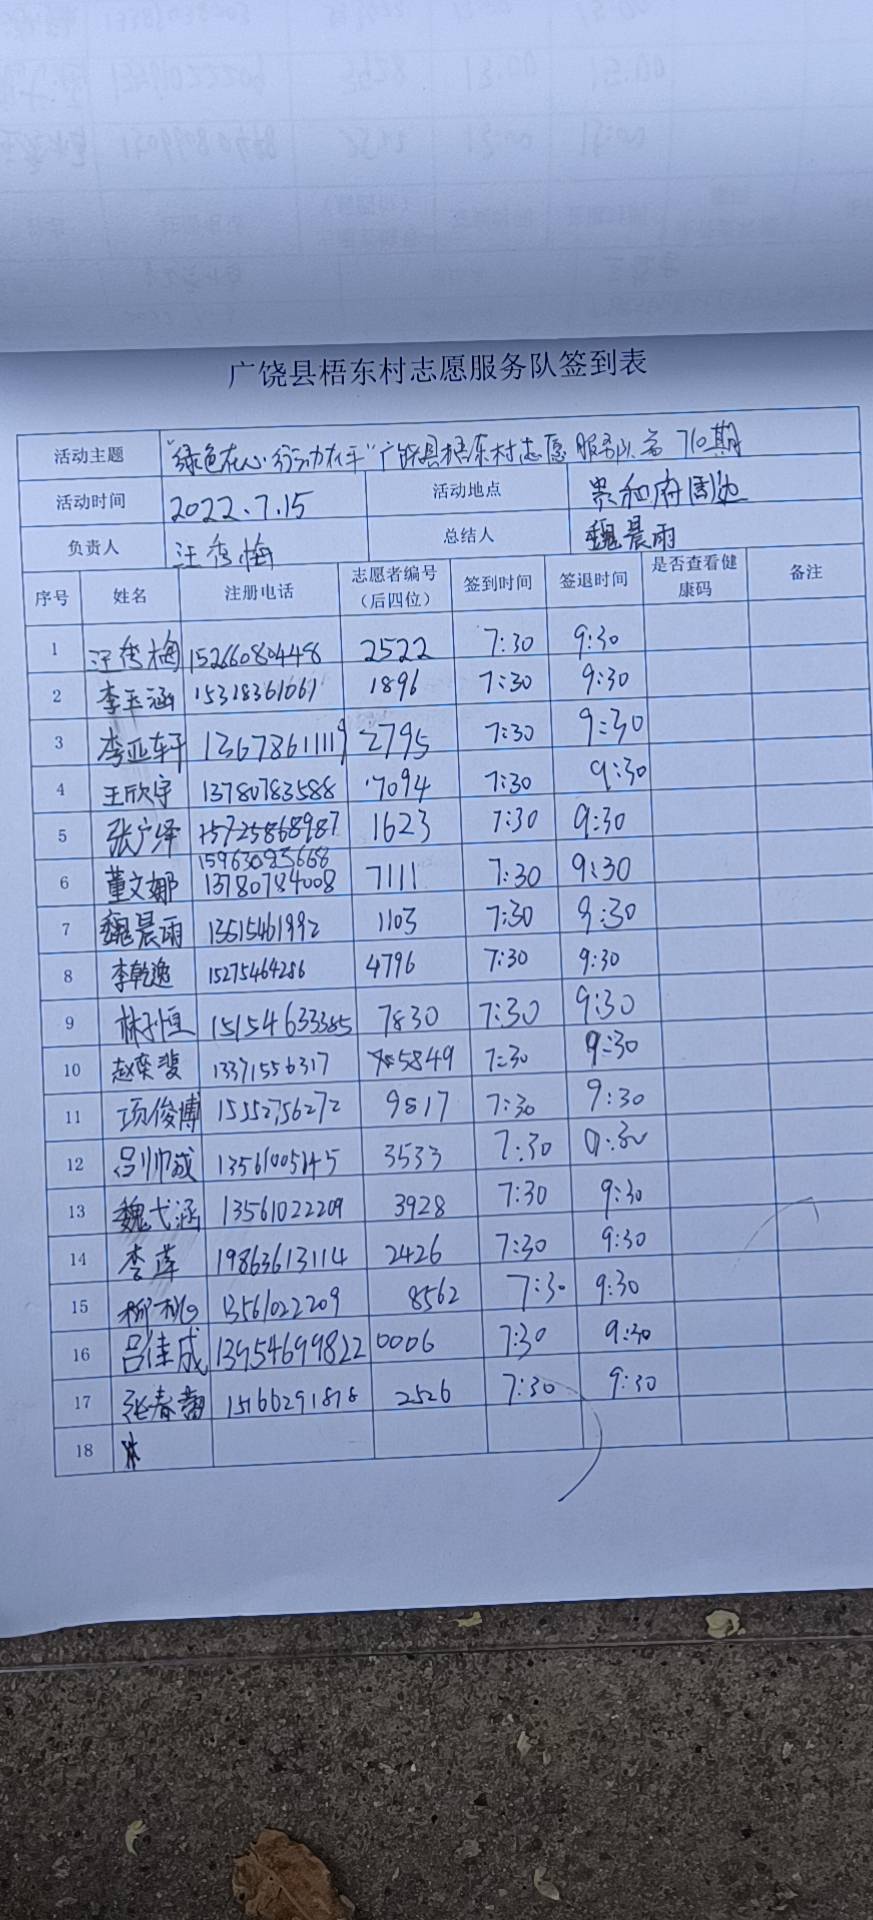 广饶县梧东村志愿服务队签到表
活动主题 "绿色在心·行动在手"广饶县梧东村志愿服务队第710期
活动时间 2022.7.15 活动地点 贵和府周边
负责人 汪秀梅 总结人 魏晨雨
序号 姓名 注册电话 志愿者编号（后四位） 签到时间 签退时间 是否查看健康码 备注
1 汪秀梅 152660804448 2522 7:30 9:30
2 李玉涵 15318361061 1896 7:30 9:30
3 李亚轩 13678611119 2795 7:30 9:30
4 王欣宇 13780783588 7094 7:30 9:30
5 张广泽 15725868987 1623 7:30 9:30
6 董文娜 15963095668 13780784008 7111 7:30 9:30
7 魏晨雨 13615461992 1103 7:30 9:30
8 李乾逸 15275464286 4796 7:30 9:30
9 林子恒 15154633385 7830 7:30 9:30
10 赵奕斐 13371556317 5849 7:30 9:30
11 项俊博 15552756272 9817 7:30 9:30
12 吕帅成 13561005145 3533 7:30 9:30
13 魏弋涵 13561022209 3928 7:30 9:30
14 李莲 19863613114 2426 7:30 9:30
15 13561022209 8562 7:30 9:30
16 吕佳成 13954699822 0006 7:30 9:30
17 张春蕾 15166291878 2526 7:30 9:30
18